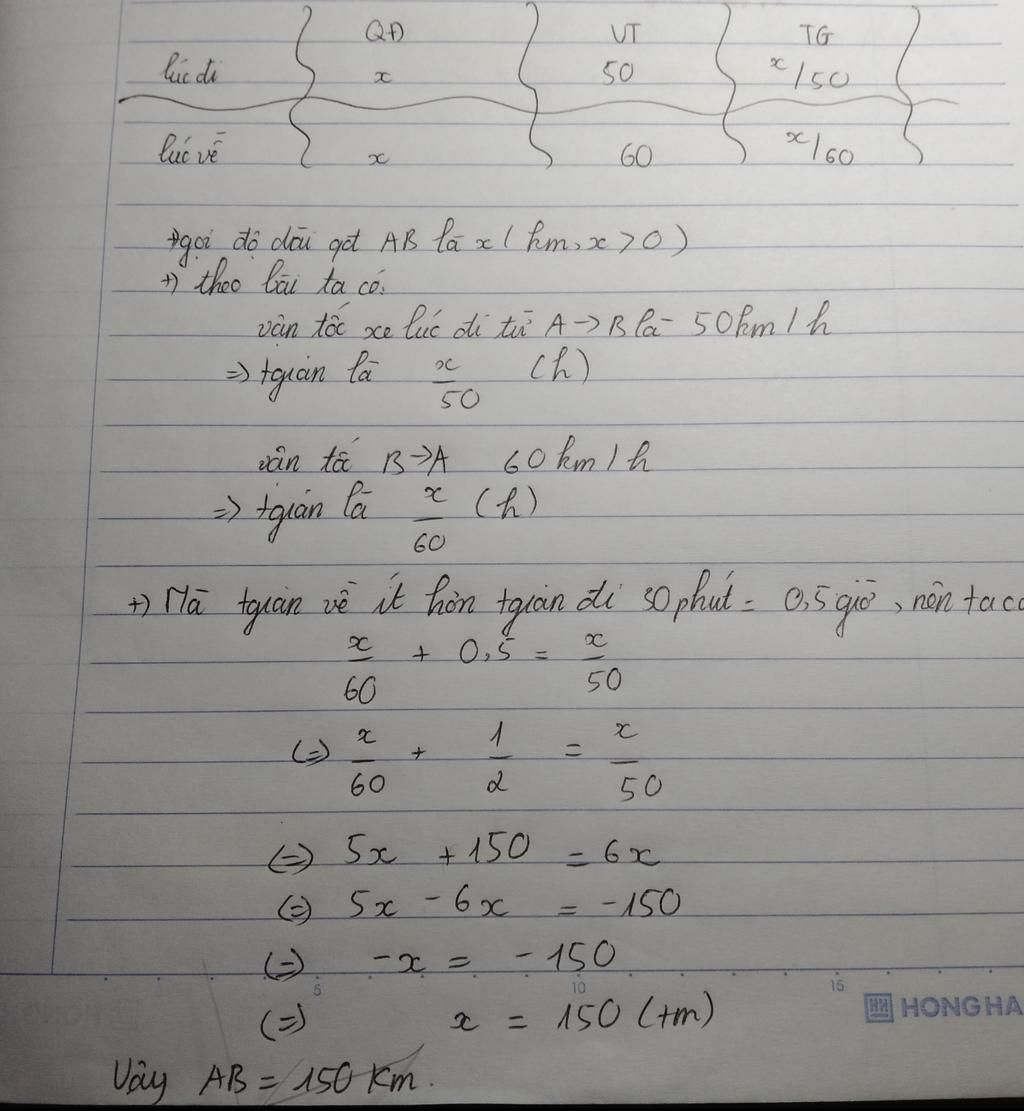 QĐ VT TG
lúc đi x 50 x/50
lúc về x 60 x/60
+) gọi độ dài qđ AB là x ( km, x > 0 )
+) theo bài ta có:
vận tốc xe lúc đi từ A → B là 50km/h
=> tgian là x/50 (h)
vận tốc B → A 60km/h
=> tgian là x/60 (h)
+) Mà tgian về ít hơn tgian đi 30 phút = 0,5 giờ, nên ta có
x/60 + 0,5 = x/50
(=) x/60 + 1/2 = x/50
(=) 5x + 150 = 6x
(=) 5x - 6x = -150
(=) -x = -150
5 10 15
HONG HA
(=) x = 150 (tm)
Vậy AB = 150 Km.